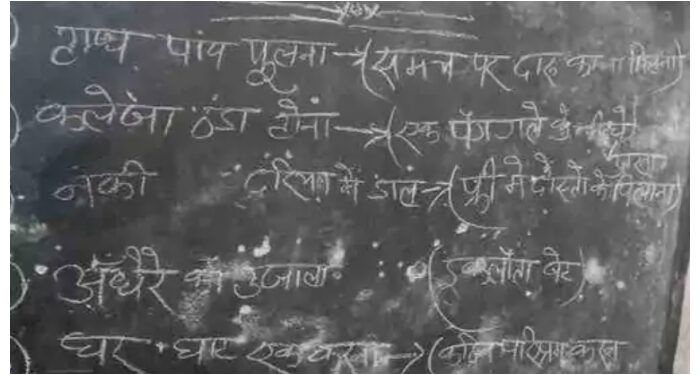 हाथ पांव फूलना → (समय पर दारू का ना मिलना)
कलेजा ठंडा होना → (एक पैग गले के नीचे
नेकी दरिया में डाल → (फ्री में दोस्तों को पिलाना)
अंधेरे का उजाला (इकलौता बेटा)
घर घाट एक करना → (कठिन परिश्रम करना